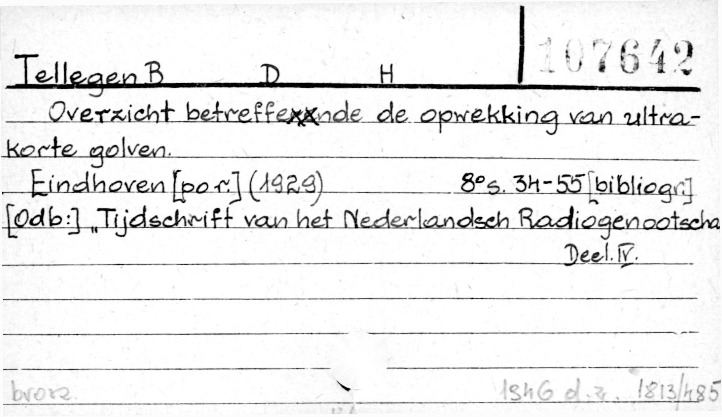 107642
Tellegen B D H
Overzicht betreffexxnde de opwekking van ultra-
korte golven.
Eindhoven [po r.] (1929) 8° s. 34-55 [bibliogr.]
[Odb:] „Tijdschrift van het Nederlandsch Radiogenootscha
Deel. IV.
brosz. 1946 d. z. 1813/485